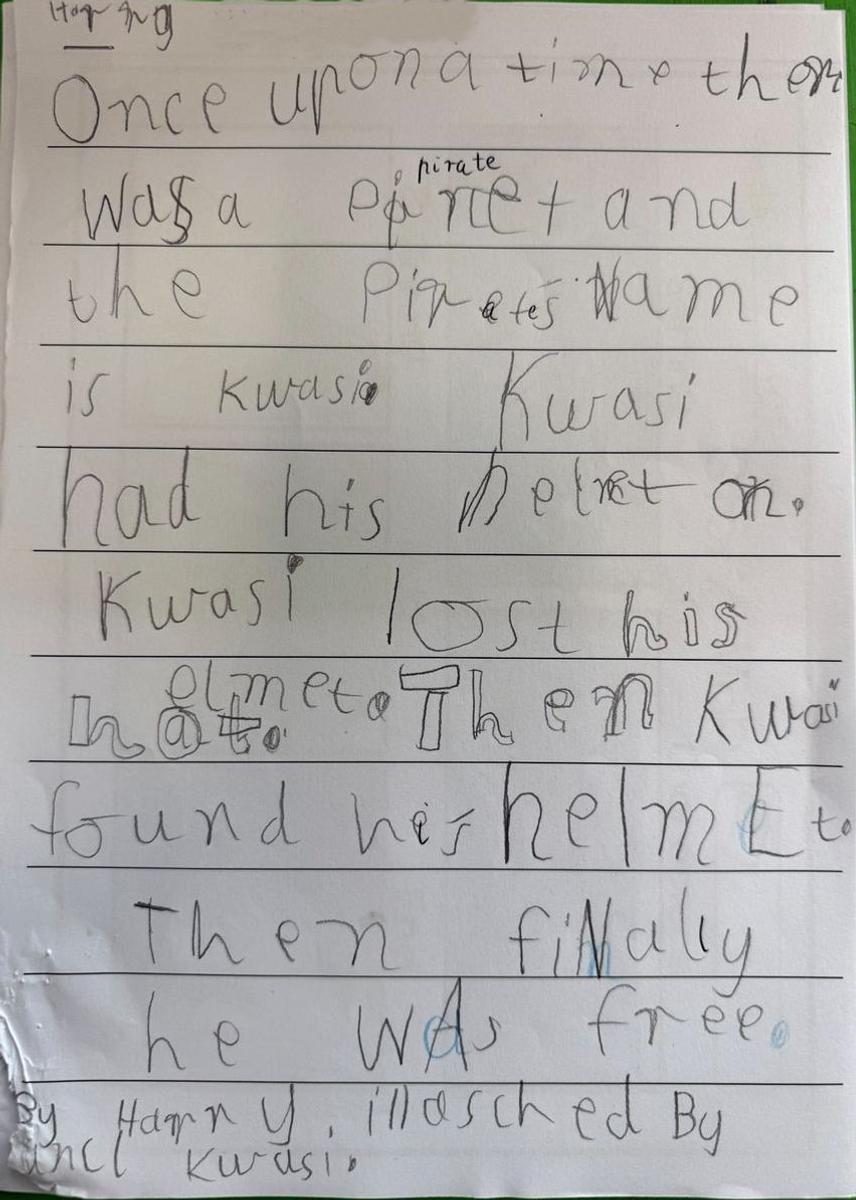 Once upon a time ther
pirate
was a Piret and
the Pirates Name
is kwasi. Kwasi
had his helmet on.
Kwasi lost his
elmet.
hat. Then Kwasi
found his helmEt.
Then fiNally
he wAs free.
By Harry, illasched By
uncl Kwasi.